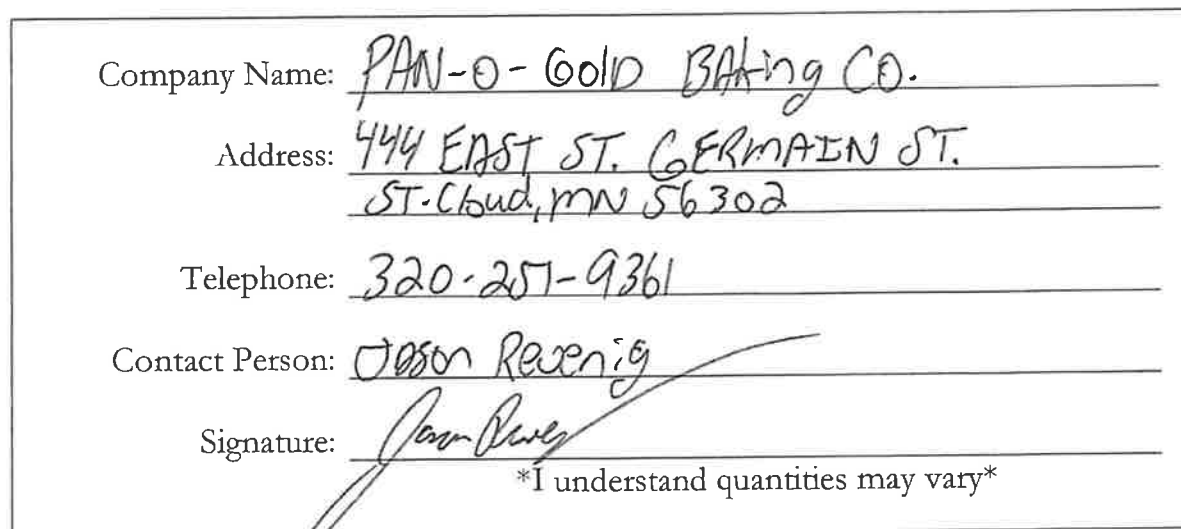 Company Name: PAN-O-GOlD BAKing CO.
Address: 444 EAST ST. GERMAIN ST.
ST. Cloud, MN 56302
Telephone: 320-251-9361
Contact Person: Jason Revenig
Signature: Jason
*I understand quantities may vary*